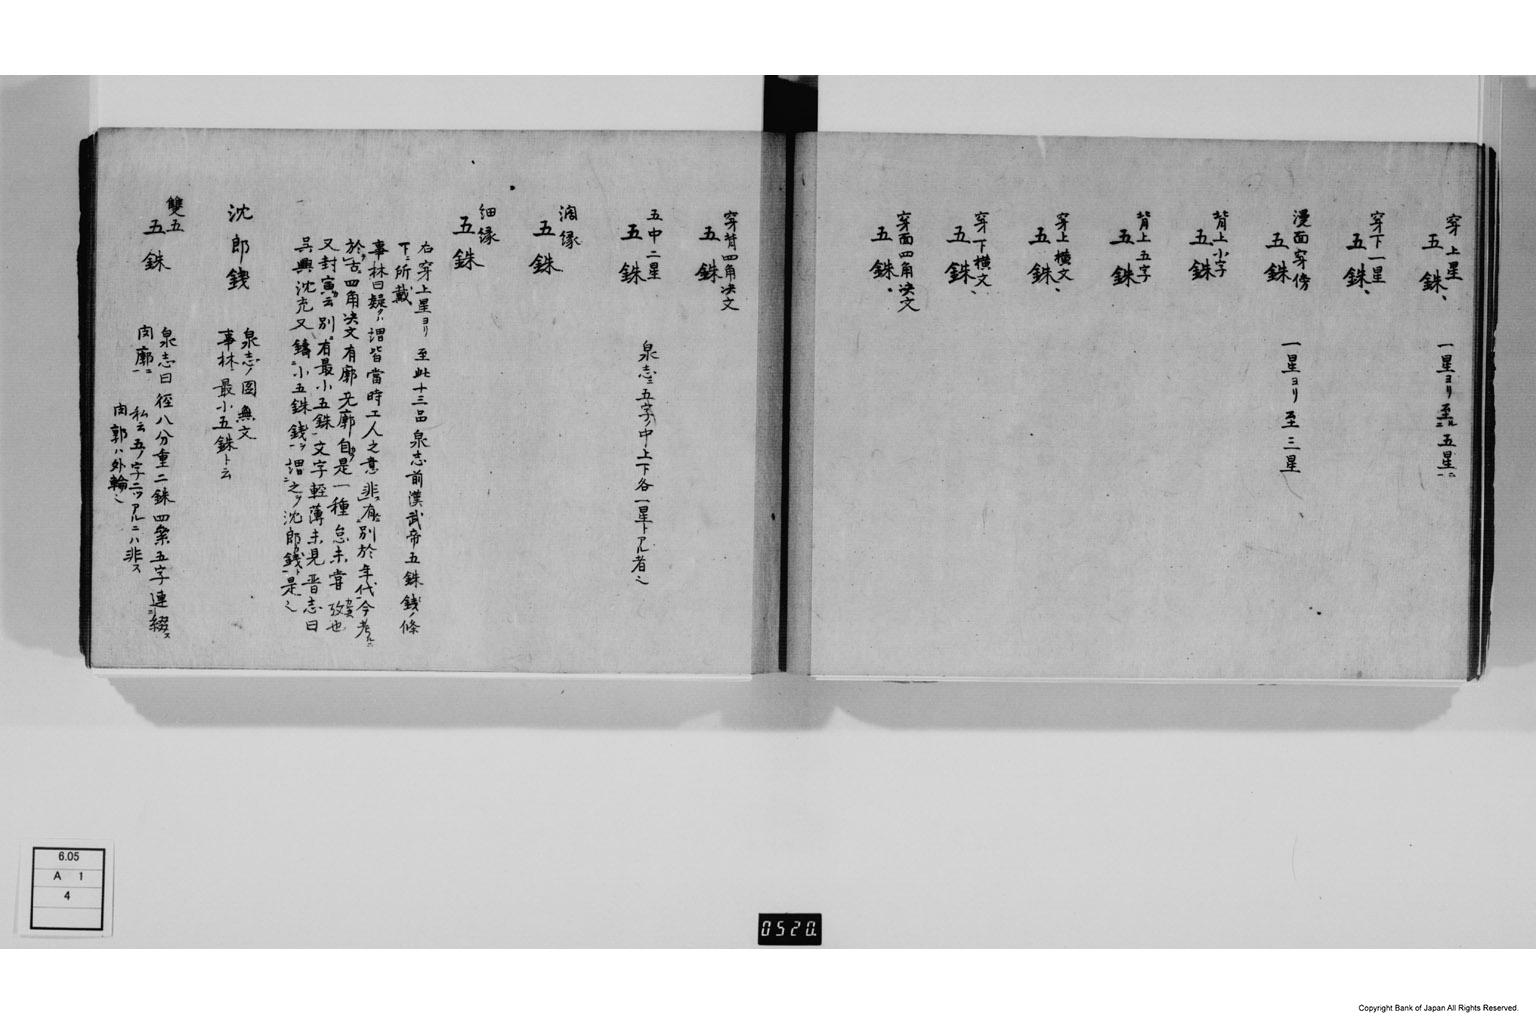 穿上星
五銖、
一星ヨリ至ル五星ニ
穿下一星
五銖、
漫面穿傍
五銖
一星ヨリ至三星
背上小字
五銖
背上五字
五銖
穿上横文、
五銖
穿下横文、
五銖
穿面四角决文
五銖。
穿背四角决文
五銖
五中二星
五銖
泉志ニ五字ノ中上下各一星トアル者
濶縁
五銖
細縁
五銖
右穿上星ヨリ至此十三品泉志前漢武帝五銖錢ノ條
下ニ所載
事林曰疑クハ謂皆當時工人之意非有別於年代今考ルニ
於古四角决文有廓无廓自是一種怠未嘗攷也
又封演云別有最小五銖文字輕薄未見晋志曰
呉興沈充又鑄小五銖錢謂之沈郎錢是
沈郎錢
泉志ノ図無文
事林ニ最小五銖ト云
雙五
五銖
泉志曰徑八分重二銖四絫五字連綴ス
肉廓ニ
私云五ノ字二ツアルニハ非ス
肉郭ハ外輪
6.05
A 1
4
0520.
Copyright Bank of Japan All Rights Reserved.